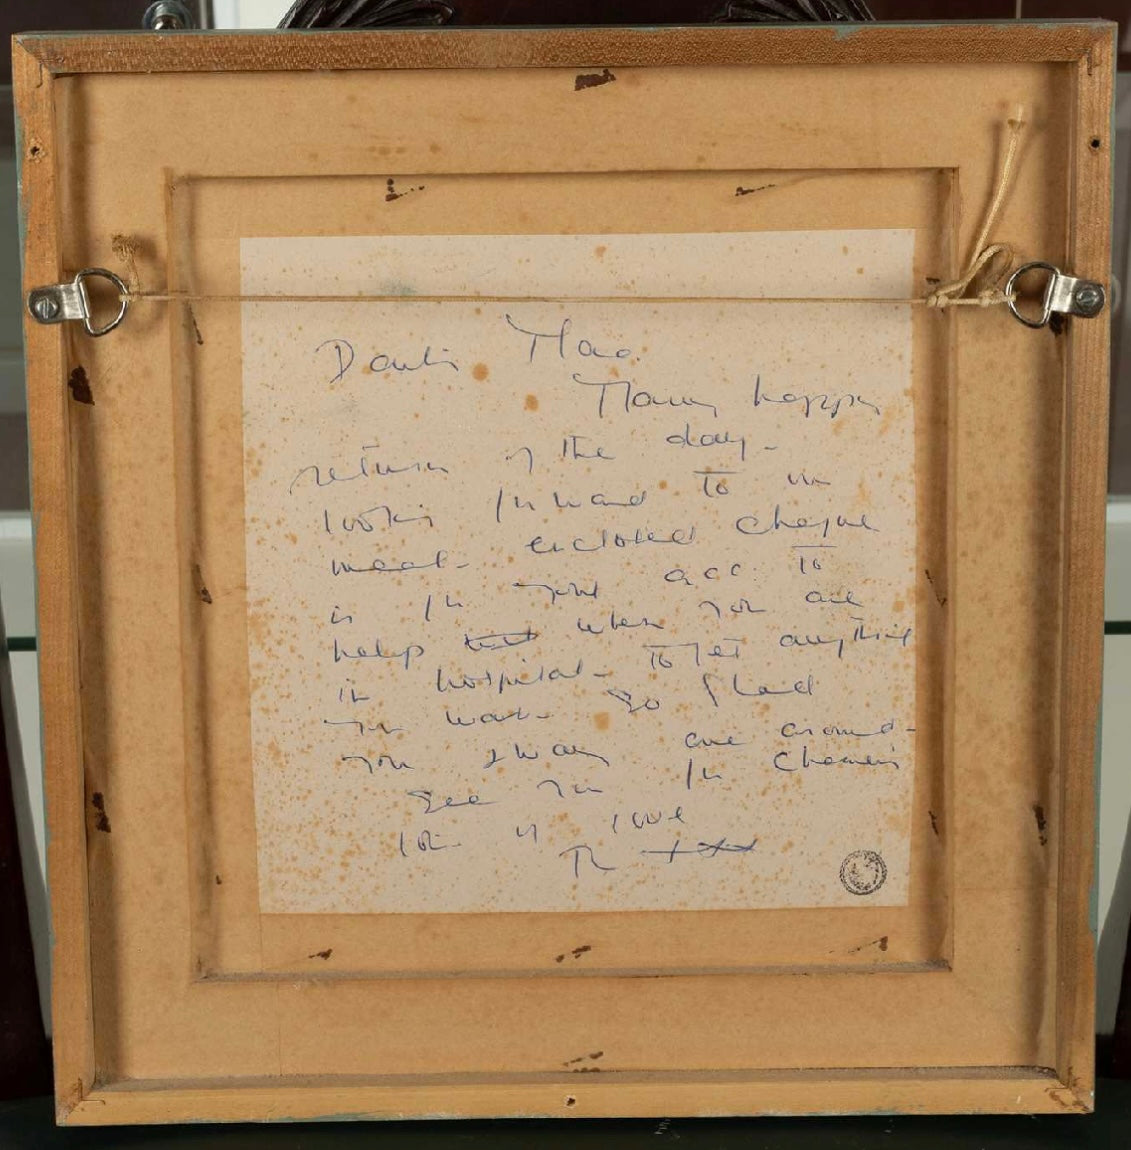 Darling Mac.
Many happy
returns of the day -
looking forward to our
meal - enclosed cheque
is for your acc. to
help when you are
in hospital - to get anything
you want - So glad
you &
are around -
See you for
lots of love
xxx